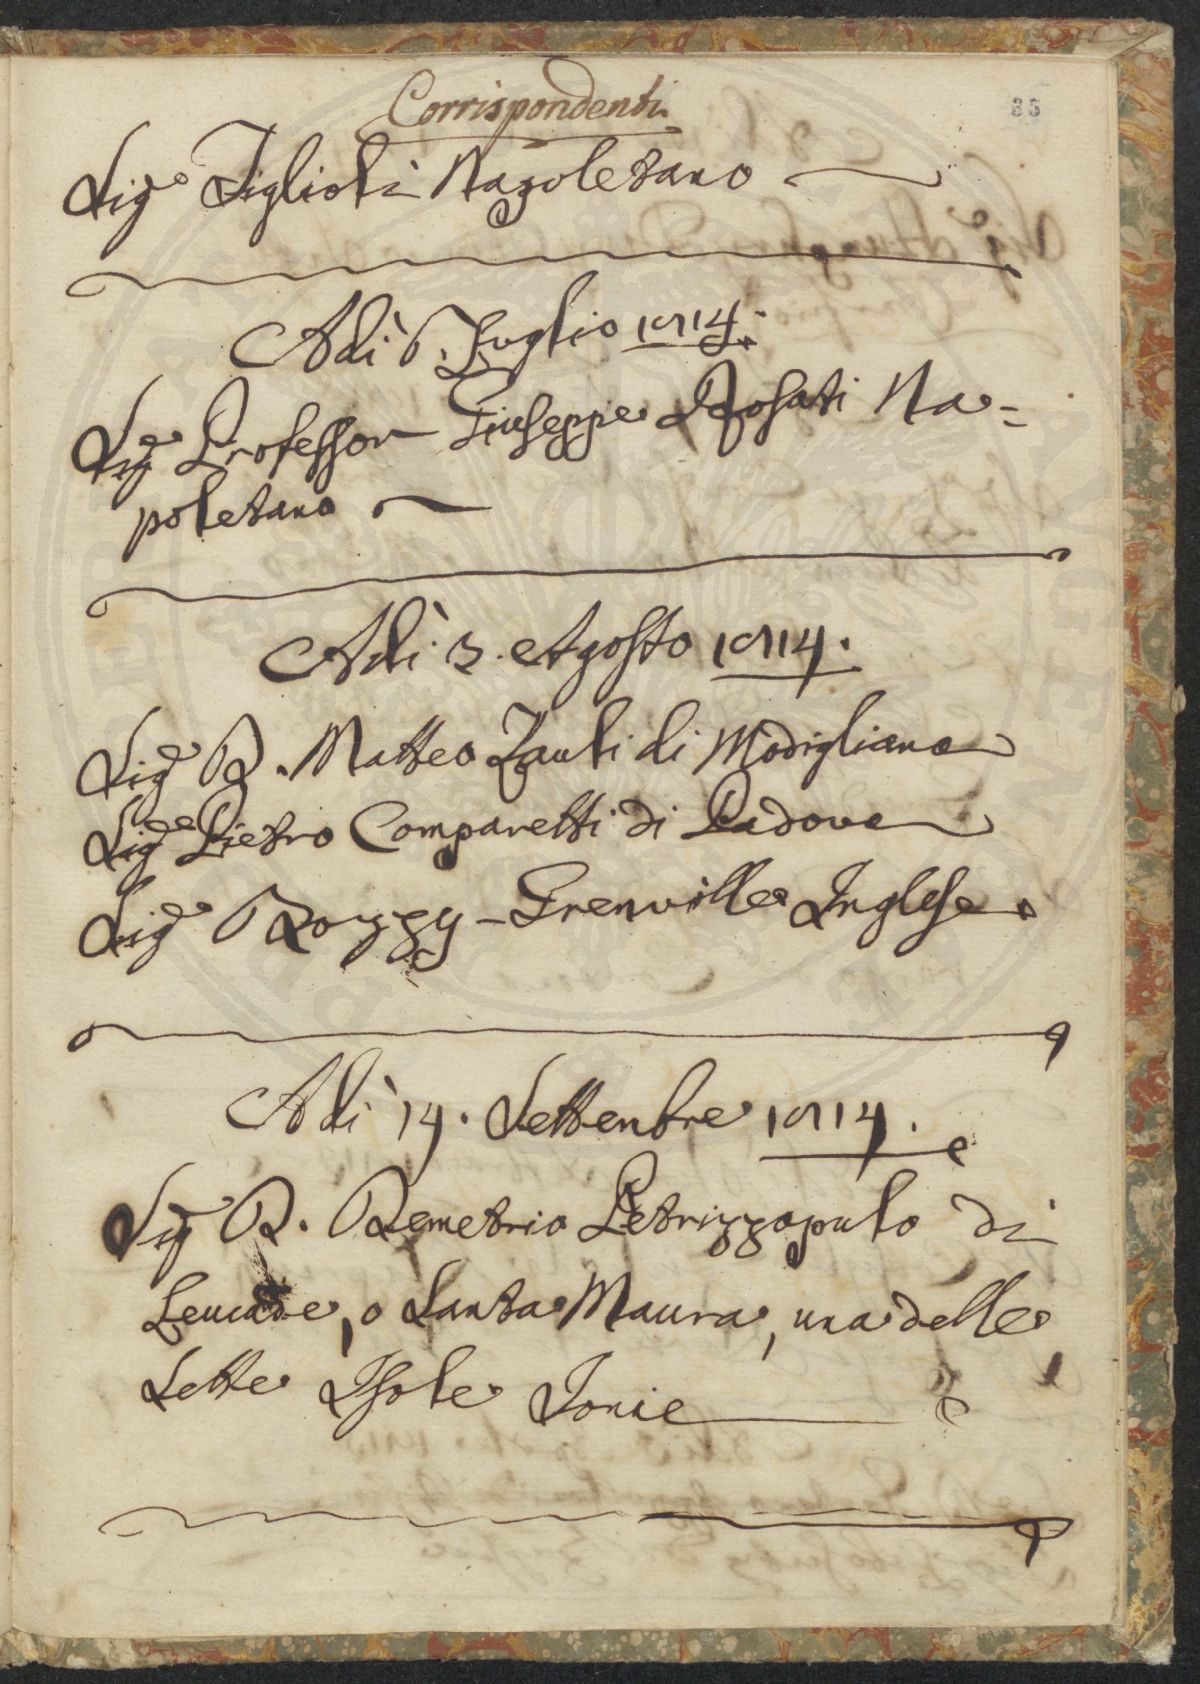 Corrispondenti
85
Sig.e Figlioli Napoletano
Adì 6. Luglio 1814.
Sig.e Professor Giuseppe Rosati Na=
poletano
Adì 3. Agosto 1814.
Sig.e D. Matteo Zauli di Modigliana
Sig.e Pietro Comparetti di Padova
Sig.e Grenville Inglese.
Adì 14. Settembre 1814.
Sig.e D. Demetrio Petrizzopulo di
Leucade, o Santa Maura, una delle
Sette Isole Jonie